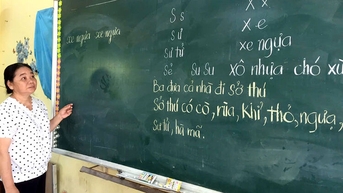 sư ngựa xe ngựa
S s X x
sư x e
sư tử xe ngựa
Sẻ Su Su xô nhựa chó xù
Ba đưa cả nhà đi sở thú
Sở thú có cò, rùa, khỉ, thỏ, ngựa,
Sư tử, hà mã.